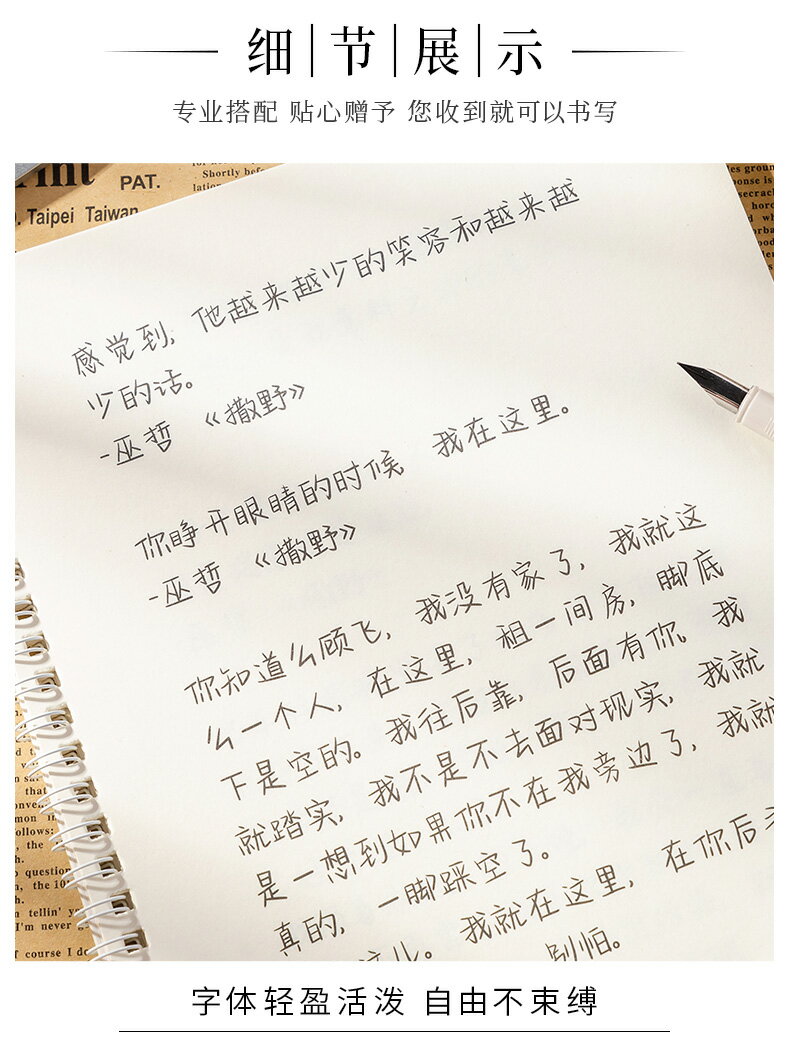 细节展示
专业搭配 贴心赠予 您收到就可以书写
PAT.
Shortly
Taipei Taiwan
感觉到,他越来越少的笑容和越来越
少的话。
-巫哲 《撒野》
你睁开眼睛的时候,我在这里。
-巫哲 《撒野》
你知道么顾飞,我没有家了,我就这
么一个人,在这里,租一间房,脚底
下是空的。我往后靠,后面有你,我
就踏实,我不是不去面对现实,我就
是一想到如果你不在我旁边了,我就
真的,一脚踩空了。
我就在这里,在你后
别怕。
that
follows:
, the
question
n, the 10
n tellin' y
I'm never
T course I do
字体轻盈活泼 自由不束缚